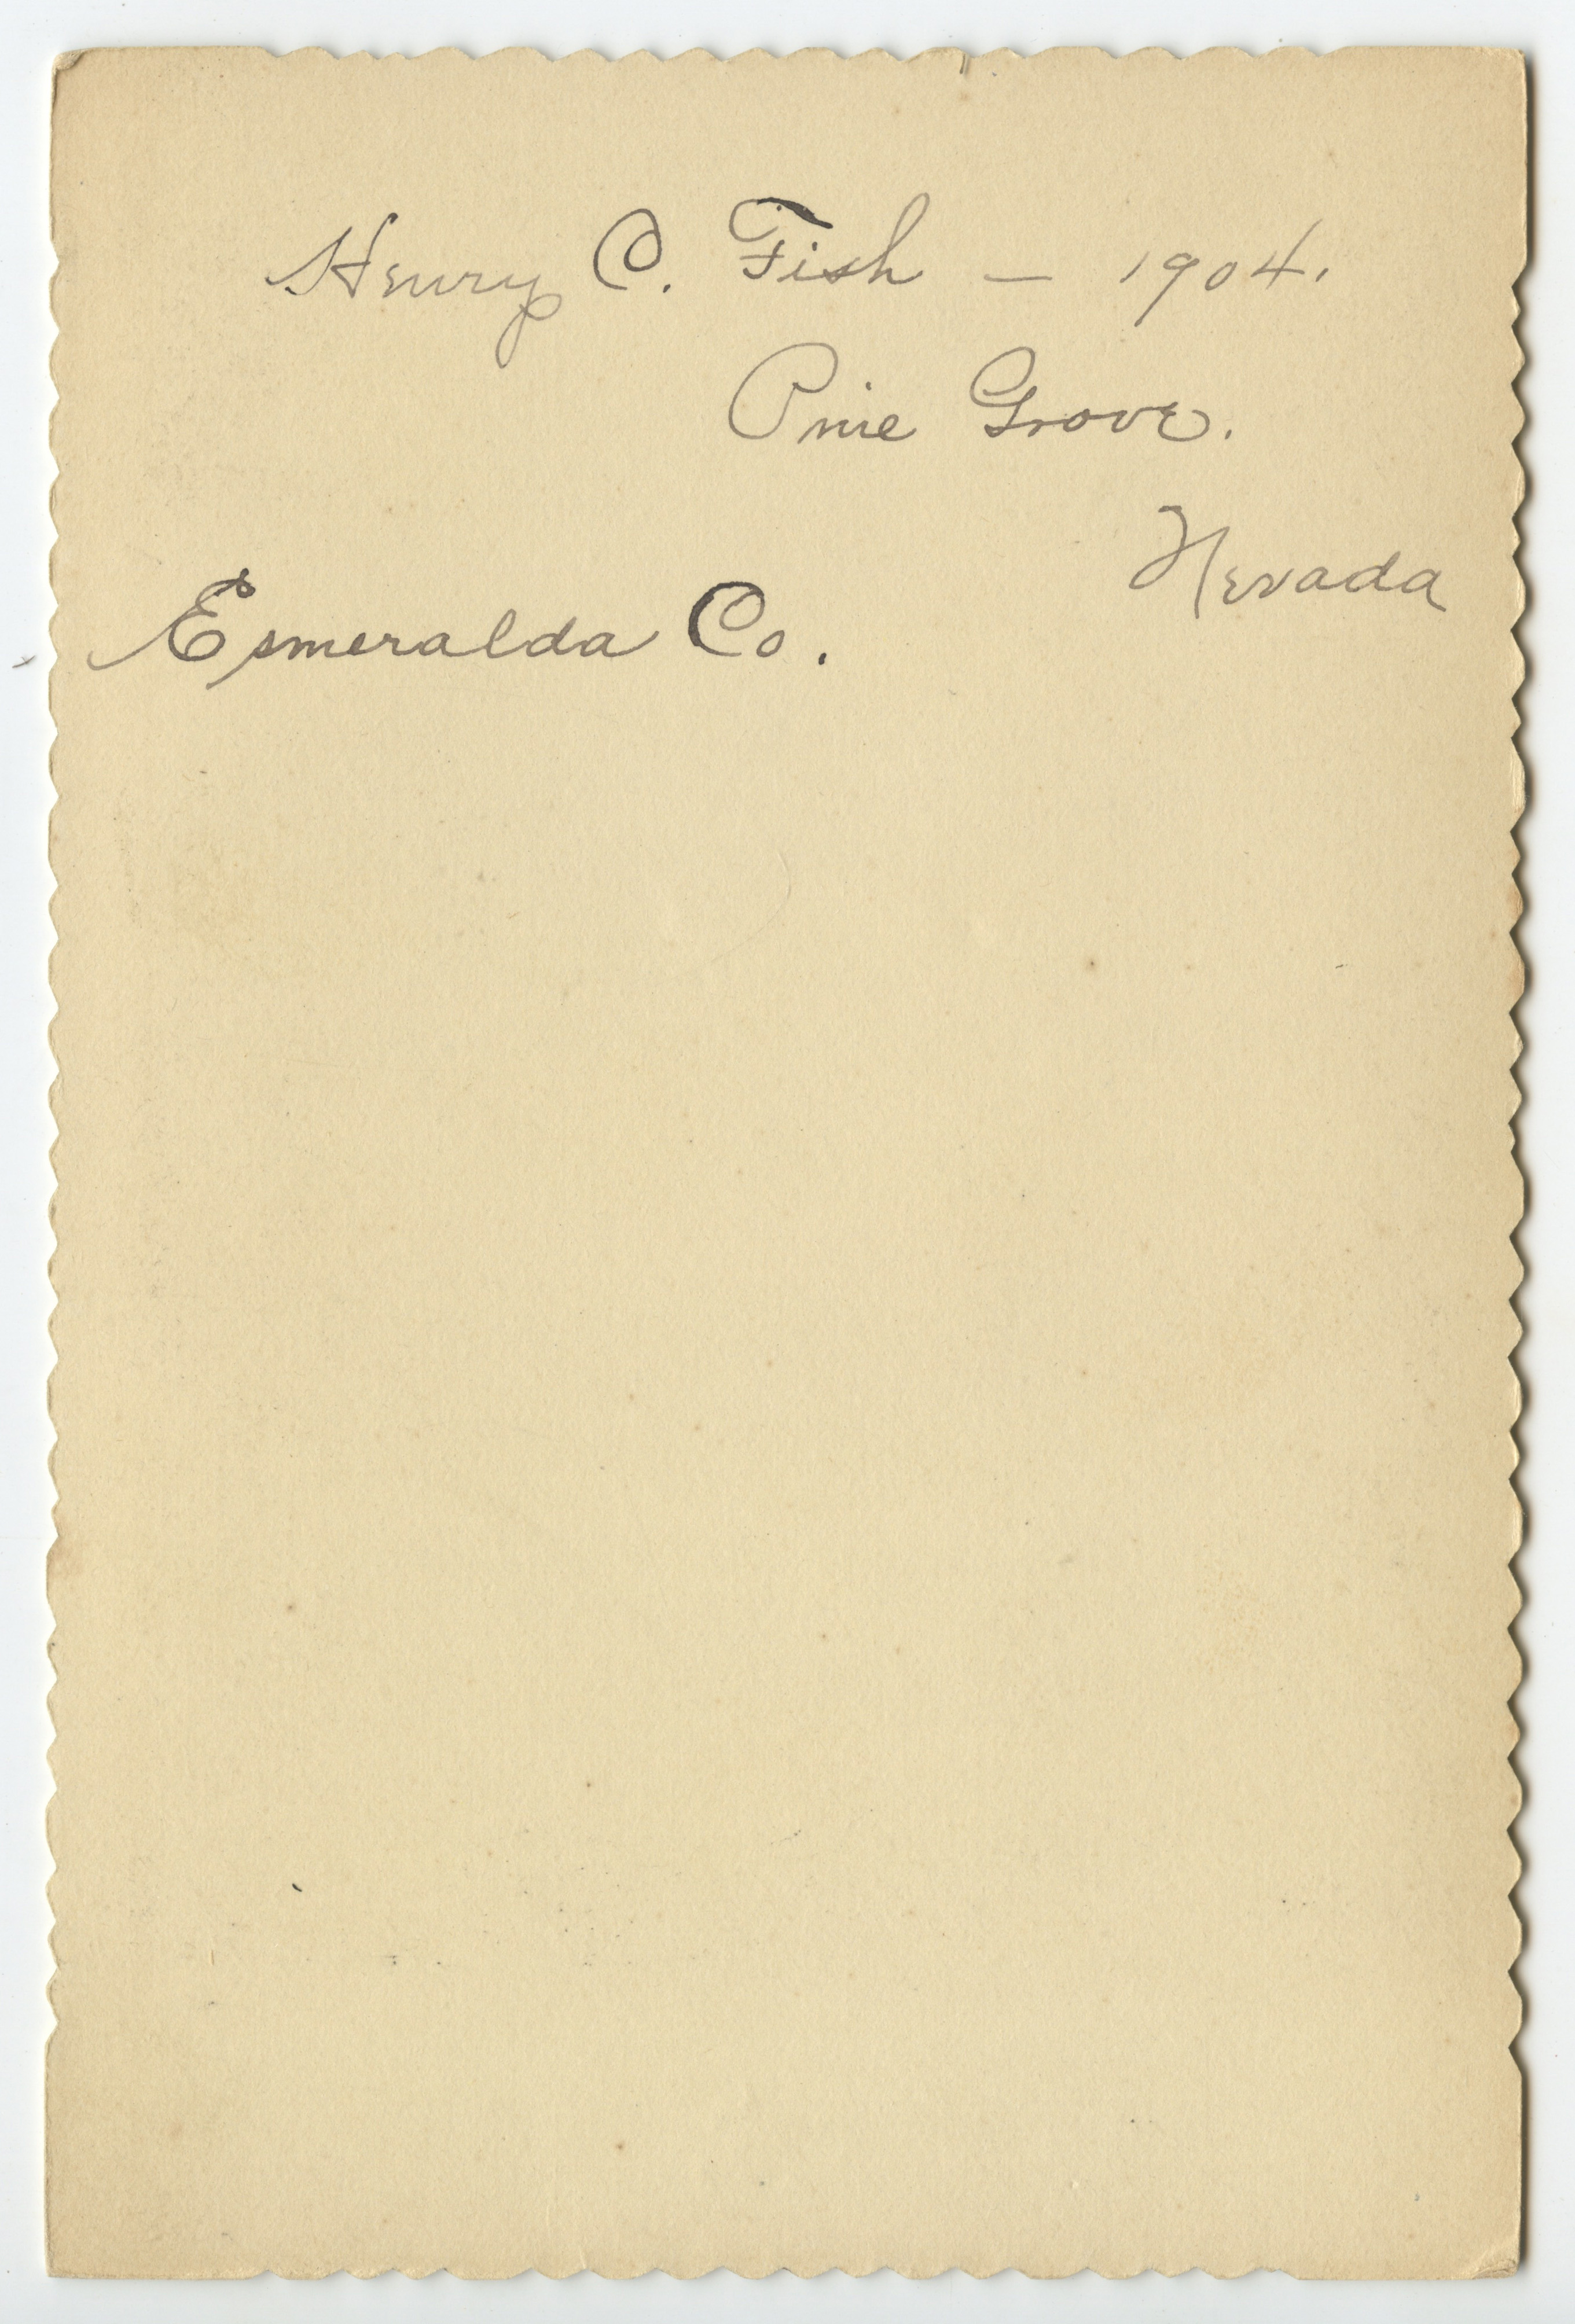 Henry C. Fish — 1904.
Pine Grove.
Nevada
Esmeralda Co.